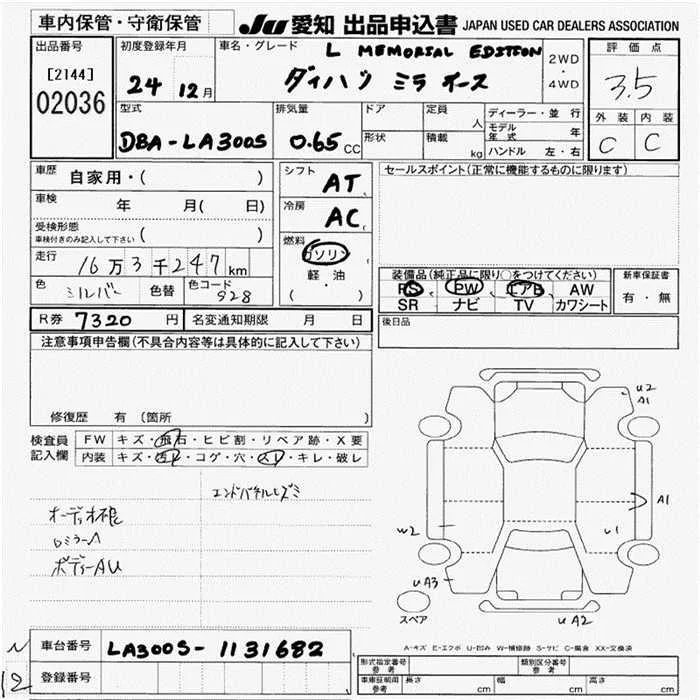 車内保管・守衛保管
JU 愛知 出品申込書 JAPAN USED CAR DEALERS ASSOCIATION
出品番号
[2144]
02036
初度登録年月
24 12月
車名・グレード
L MEMORIAL EDITION
ダイハツ ミラ イース
2WD
・
4WD
評価点
3.5
外装 内装
C C
型式
DBA-LA300S
排気量
0.65 CC
ドア
形状
定員
人
積載
kg
ディーラー・並行
モデル年式 年
ハンドル 左・右
車歴 自家用・( )
車検 年 月( 日)
受検形態
車検付きのみ記入して下さい ( )
走行
16万3千247km
色 シルバー 色替 色コード 928
シフト
AT
冷房
AC
燃料
ガソリン
軽・油
( )
セールスポイント(正常に機能するものに限ります)
装備品(純正品に限り○をつけてください)
PS、PW、エアB、AW
SR ナビ TV カワシート
新車保証書
有・無
後日品
R券 7320 円 名変通知期限 月 日
注意事項申告欄(不具合内容等は具体的に記入して下さい)
修復歴 有(箇所 )
検査員
記入欄
FW キズ・飛石・ヒビ割・リペア跡・X要
内装 キズ・汚レ・コゲ・穴・スレ・キレ・破レ
オーディオ根
ロミラーハ
ボディーAU
U2
A1
A1
W2
U1
UA3
UA2
スペア
A-キズ E-エクボ U-凹み W-補修跡 S-サビ C-腐食 XX-交換済
車台番号 LA300S-1131682
登録番号
12
形式指定番号
参考
類別区分番号
参考
車庫証明用
参考
長さ cm 幅 cm 高さ cm